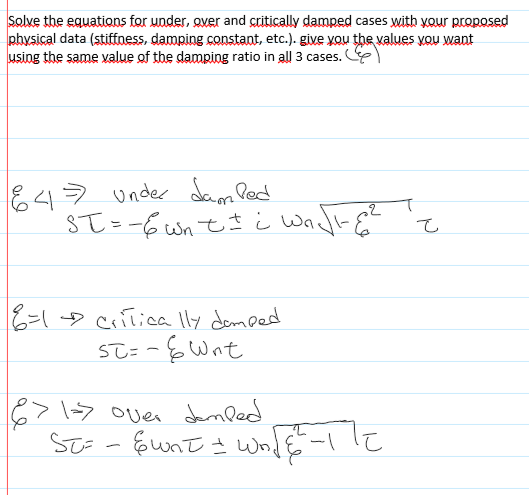 Solve the equations for under, over and critically damped cases with your proposed
physical data (stiffness, damping constant, etc.). give you the values you want
using the same value of the damping ratio in all 3 cases. (ξ)
ξ<1 ⇒ under damped
Sτ = -ξ wn τ ± i wn √1-ξ² τ
ξ=1 → critically damped
Sτ = - ξ wn τ
ξ > 1 ⇒ over damped
Sτ = - ξ wn τ ± wn √ξ²-1 τ